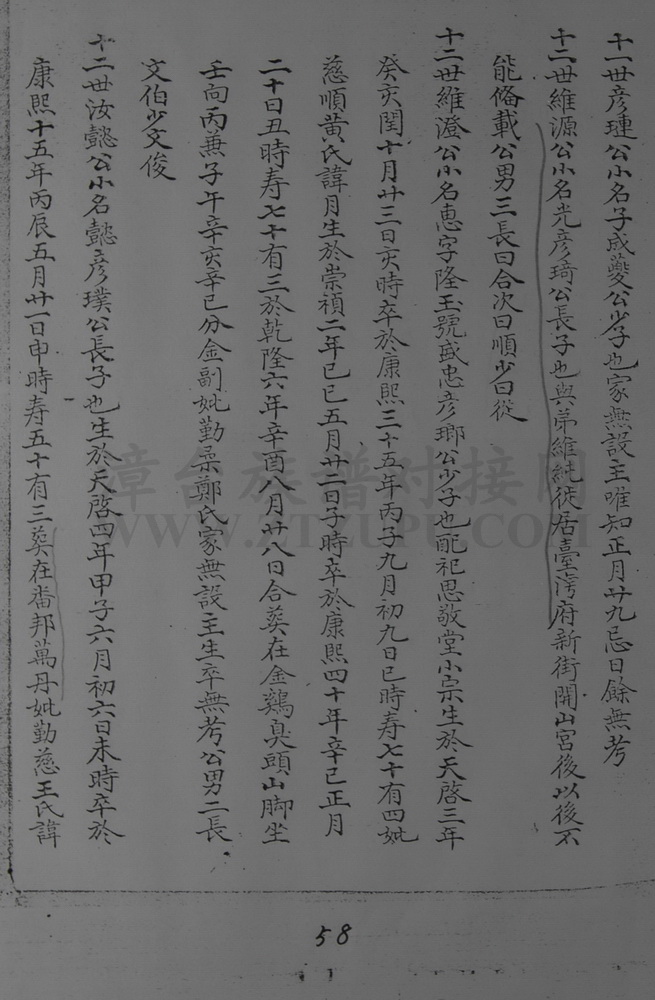 十一世彦璉公小名子成夔公少子也家無設主唯知正月廿九忌日餘無考
十二世維源公小名光彦琦公長子也與弟維純徙居臺湾府新街開山宮後以後不
能俻載公男三長曰合次曰順少曰從
十二世維澄公小名惠字隆玉號盛忠彦瑯公少子也配祀思敬堂小宗生於天啓三年
癸亥閏十月廿三日亥時卒於康熙三十五年丙子九月初九日巳時寿七十有四妣
慈順黄氏諱月生於崇禎二年己巳五月廿二日子時卒於康熙四十年辛巳正月
二十日丑時寿七十有三於乾隆六年辛酉八月廿八日合葬在金鷄臭頭山脚坐
壬向丙兼子午辛亥辛巳分金副妣勤柔鄭氏家無設主生卒無考公男二長
文伯少文俊
十二世汝懿公小名懿彦璞公長子也生於天啓四年甲子六月初六日未時卒於
康熙十五年丙辰五月廿一日申時寿五十有三葬在畨邦萬丹妣勤慈王氏諱
漳台族谱对接网
WWW.ZTZUPU.COM
58